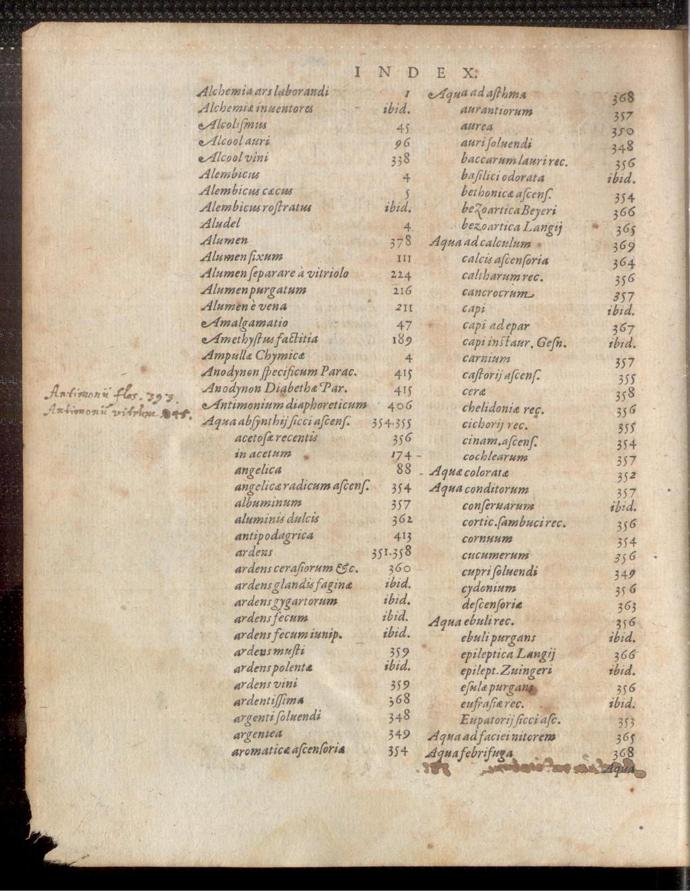 INDEX.
Alchemia ars laborandi 1
Alchemiæ inuentores ibid.
Alcolismus 45
Alcool auri 96
Alcool vini 338
Alembicus 4
Alembicus cæcus 5
Alembicus rostratus ibid.
Aludel 4
Alumen 378
Alumen fixum 111
Alumen separare à vitriolo 224
Alumen purgatum 216
Alumen è vena 211
Amalgamatio 47
Amethystus factitia 189
Ampullæ Chymicæ 4
Anodynon specificum Parac. 415
Anodynon Diabethæ Par. 415
Antimonii flos. 393.
Antimonii vitrum
Antimonium diaphoreticum 406
Aqua absynthij sicci ascens. 354.355
acetosæ recentis 356
in acetum 174
angelica 88
angelicæ radicum ascens. 354
albuminum 357
aluminis dulcis 362
antipodagrica 413
ardens 351.358
ardens cerasiorum &c. 360
ardens glandis faginæ ibid.
ardens gygartorum ibid.
ardens fecum ibid.
ardens fecum iunip. ibid.
ardens musti 359
ardens polentæ ibid.
ardens vini 359
ardentissima 368
argenti soluendi 348
argentea 349
aromaticæ ascensoria 354
Aqua ad asthma 368
aurantiorum 357
aurea 350
auri soluendi 348
baccarum lauri rec. 356
basilici odorata ibid.
bethonicæ ascens. 354
bezoartica Beyeri 366
bezoartica Langij 365
Aqua ad calculum 369
calcis ascensoria 364
caltharum rec. 356
cancrorum 357
capi ibid.
capi ad epar 367
capi instaur. Gesn. ibid.
carnium 357
castorij ascens. 355
ceræ 358
chelidoniæ rec. 356
cichorij rec. 355
cinam. ascens. 354
cochlearum 357
Aquæ coloratæ 352
Aqua conditorum 357
conseruarum ibid.
cortic. sambuci rec. 356
cornuum 354
cucumerum 356
cupri soluendi 349
cydonium 356
descensoriæ 363
Aqua ebuli rec. 356
ebuli purgans ibid.
epileptica Langij 366
epilept. Zuingeri ibid.
esulæ purgans 356
eufrasiæ rec. ibid.
Eupatorij sicci asc. 353
Aqua ad faciei nitorem 365
Aqua febrifuga 368
Aqua